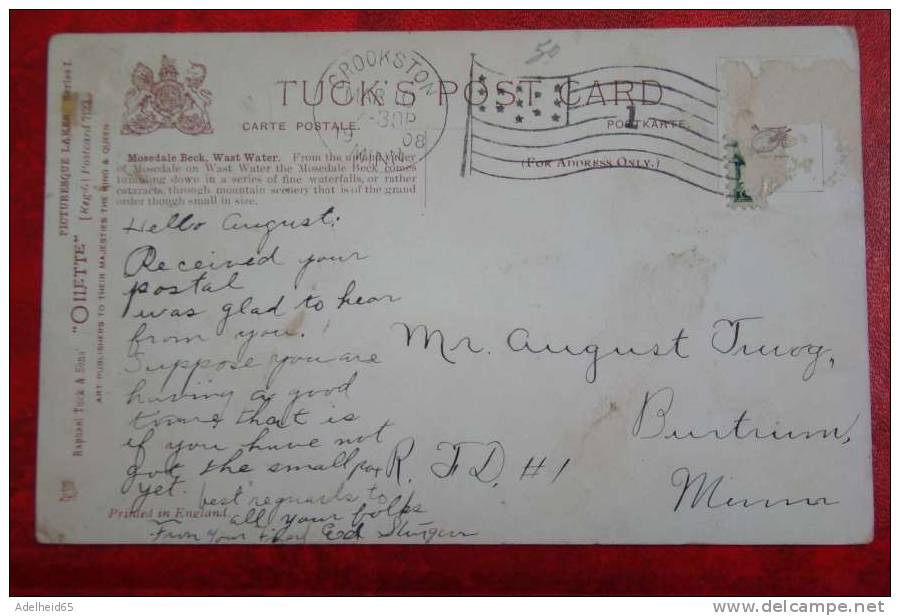 TUCK'S POST CARD
CARTE POSTALE.
POSTKARTE.
(FOR ADDRESS ONLY.)
CROOKSTON
MAR
-30P
19 08
MINN
1
50
Mosedale Beck, Wast Water. From the upland valley
of Mosedale on Wast Water the Mosedale Beck comes
tumbling down in a series of fine waterfalls, or rather
cataracts, through mountain scenery that is of the grand
order though small in size.
Raphael Tuck & Sons' "OILETTE" [Regd.] Postcard 7123
PICTURESQUE LAKES Series I.
ART PUBLISHERS TO THEIR MAJESTIES THE KING & QUEEN
Hello August:
Received your
postal
was glad to hear
from you.
Suppose you are
having a good
time, that is
if you have not
got the small pox
yet. best reguards to
all your folks
From your friend Ed
Printed in England.
Mr. August
R. F D, #1
Burtrum,
Minn
Adelheid65